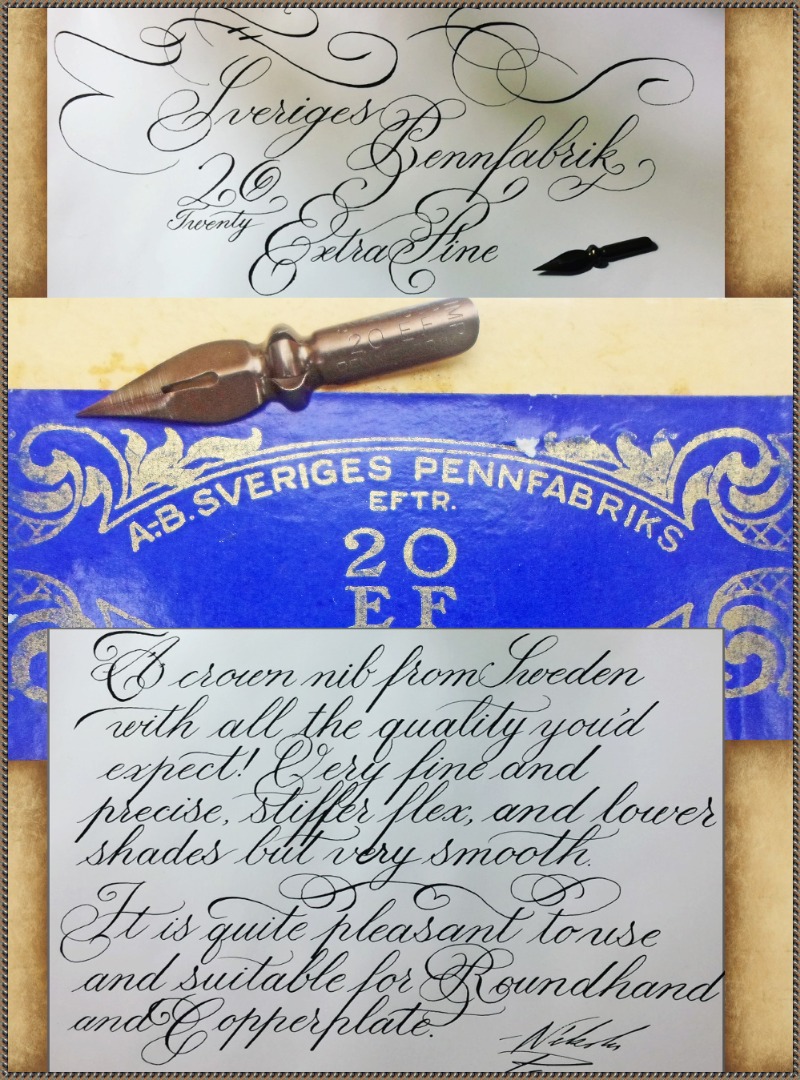 Sveriges
Pennfabrik
20
Twenty
Extra Fine
20 EF
A-B. SVERIGES PENNFABRIKS
EFTR.
20
EF
A crown nib from Sweden
with all the quality you'd
expect! Very fine and
precise, stiffer flex, and lower
shades but very smooth.
It is quite pleasant to use
and suitable for Roundhand
and Copperplate.